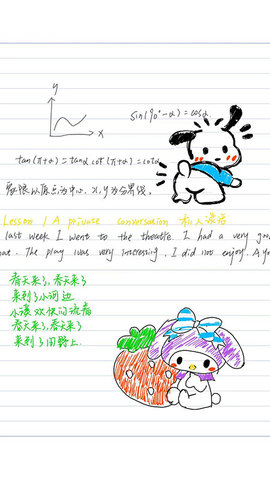 y
sin(90°-α)=cosα
x
tan(π+α)=tanα cot(π+α)=cotα
象限以原点为中心，x,y为分界线。
Lesson 1 A private conversation 私人谈话
last week I went to the theatre. I had a very goo
eat. The play was very interesting. I did not enjoy. A yo
春天来了，春天来了
来到了小河边
小孩欢快的说着
春天来了，春天来了
来到了田野上